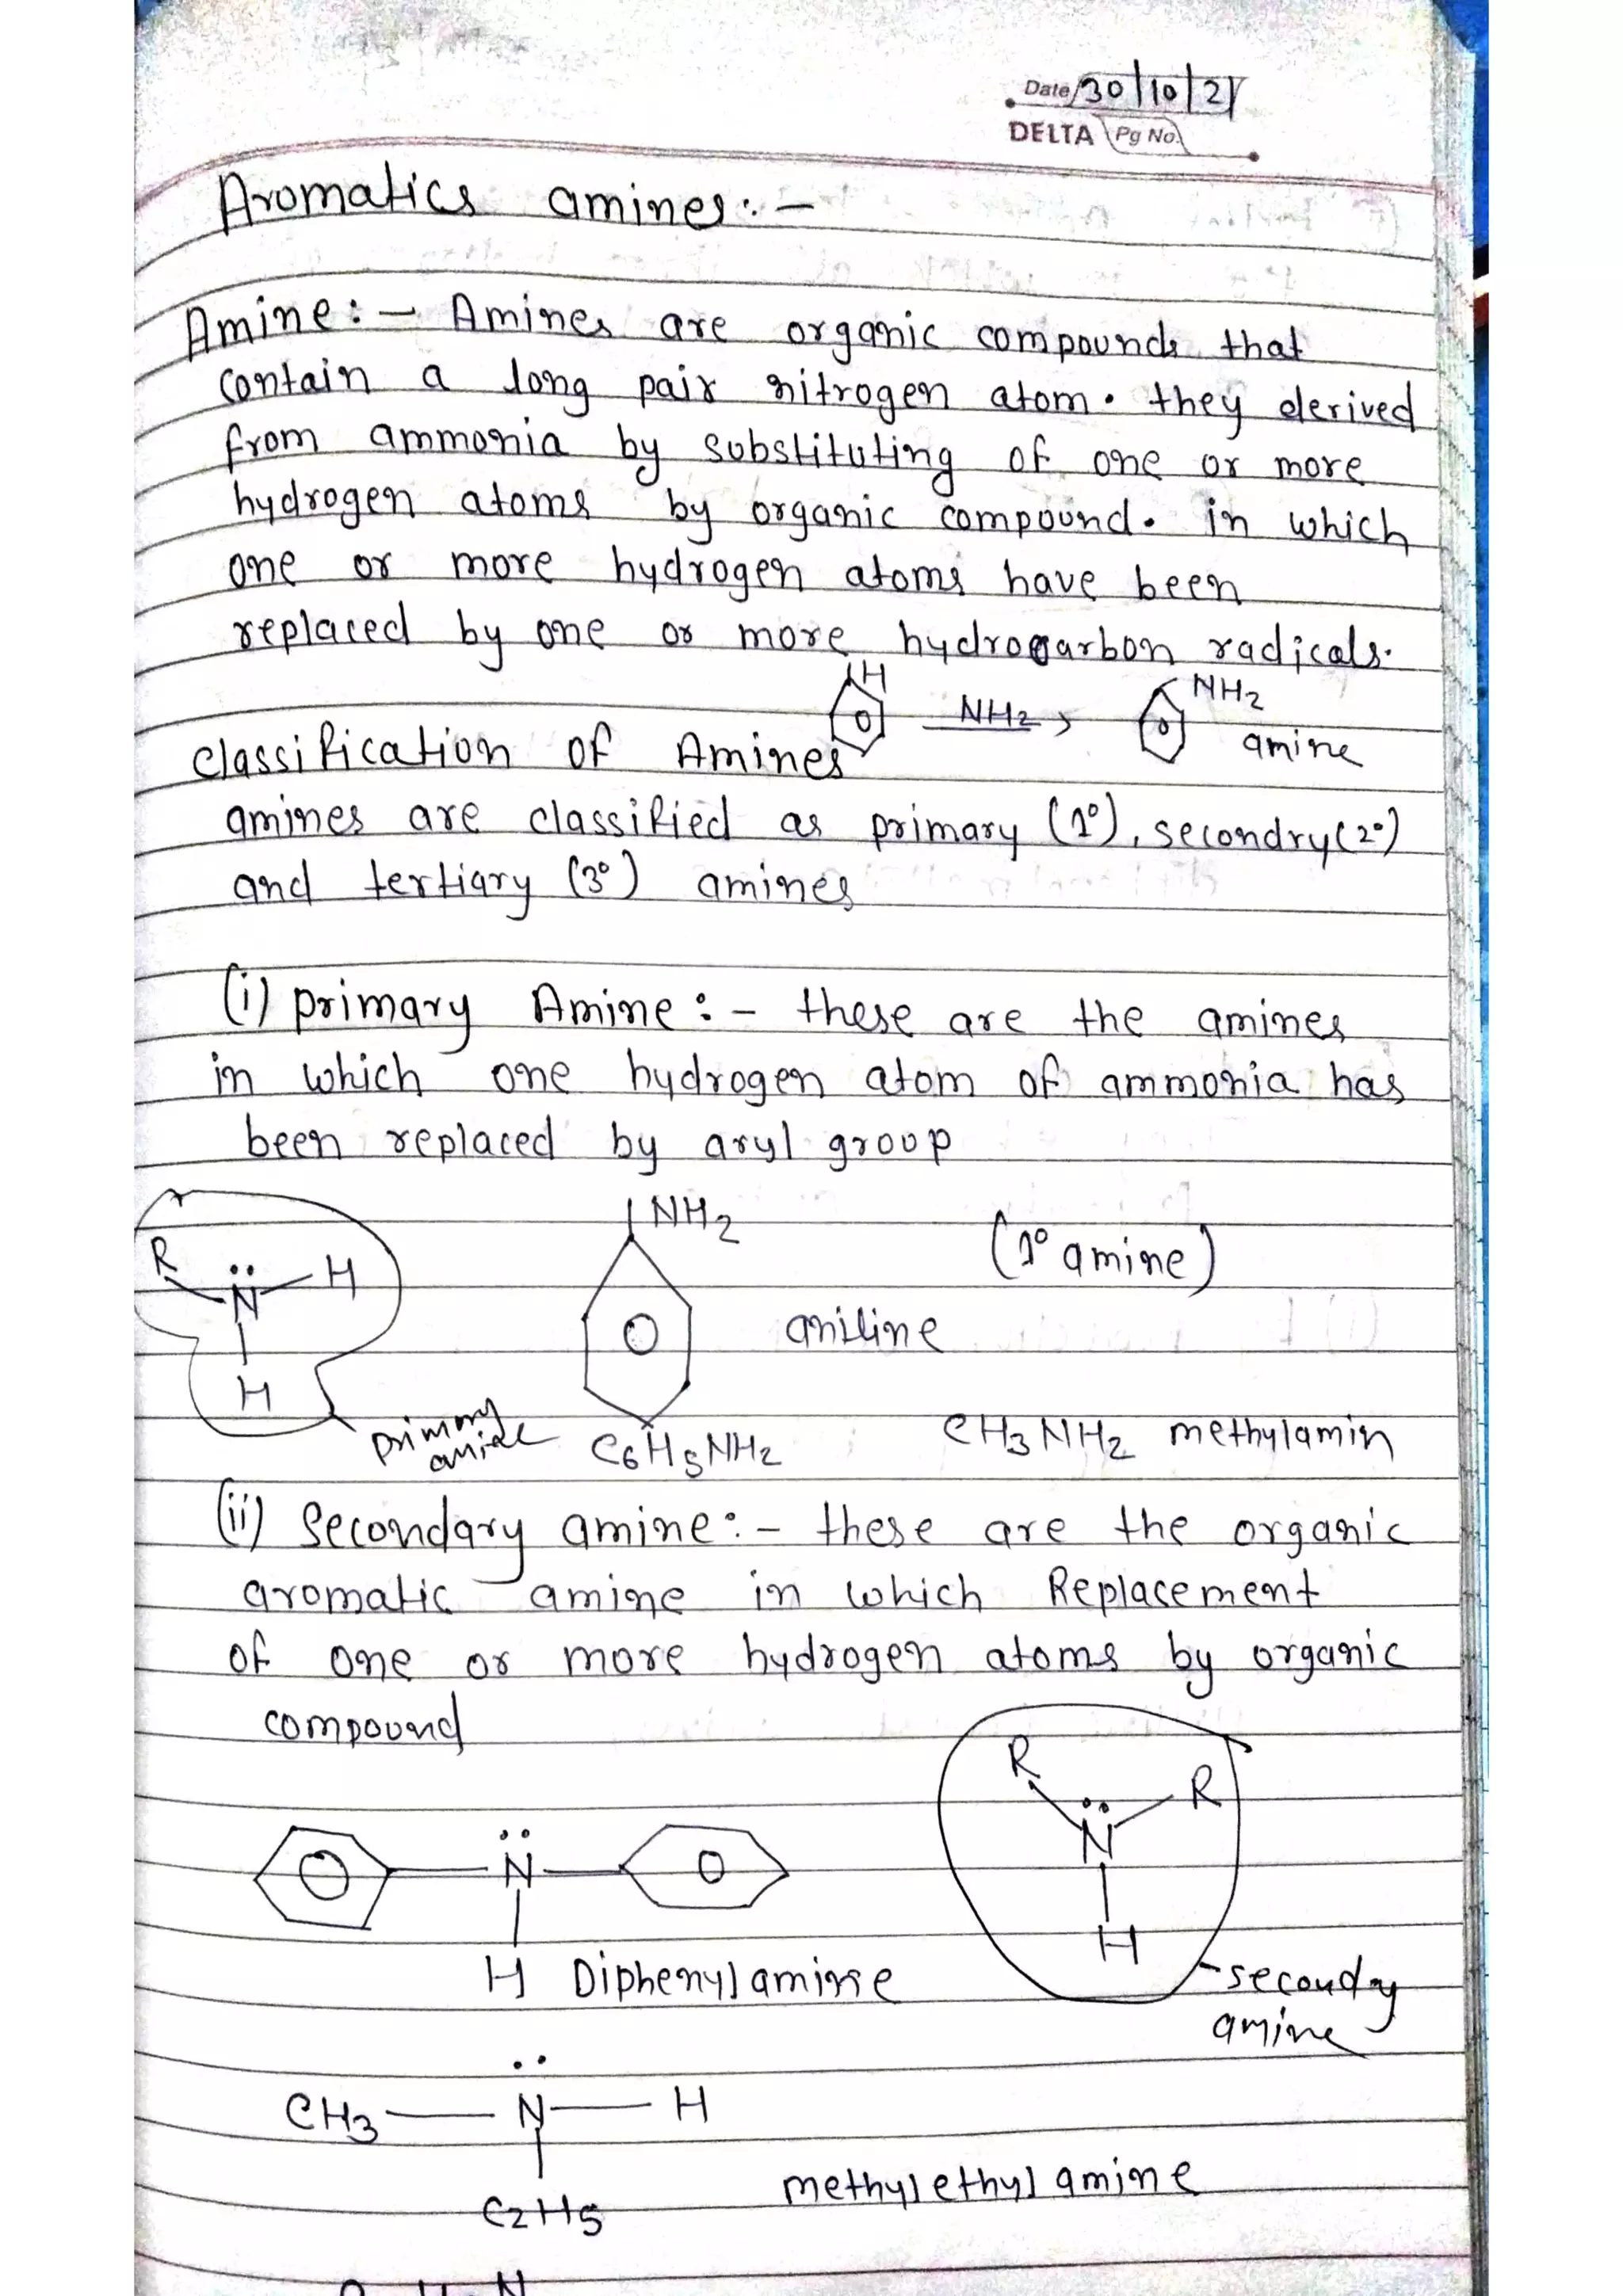 Date 30/10/21
DELTA Pg No.
Aromatics amines:-
Amine:- Amines are organic compounds that
contain a long pair nitrogen atom. they derived
from ammonia by substituting of one or more
hydrogen atoms by organic compound. in which
one or more hydrogen atoms have been
replaced by one or more hydrocarbon radicals.
H NH2 NH2
amine
classification of Amines
amines are classified as primary (1°), secondry(2°)
and tertiary (3°) amines
(i) primary Amine:- these are the amines
in which one hydrogen atom of ammonia has
been replaced by aryl group
NH2
R N H (1° amine)
aniline
H
primary amine C6H5NH2 CH3NH2 methylamin
(ii) Secondary amine:- these are the organic
aromatic amine in which Replacement
of one or more hydrogen atoms by organic
compound
R R
N N
H
H Diphenylamine secondry
amine
CH3 N H
C2H5 methylethylamine